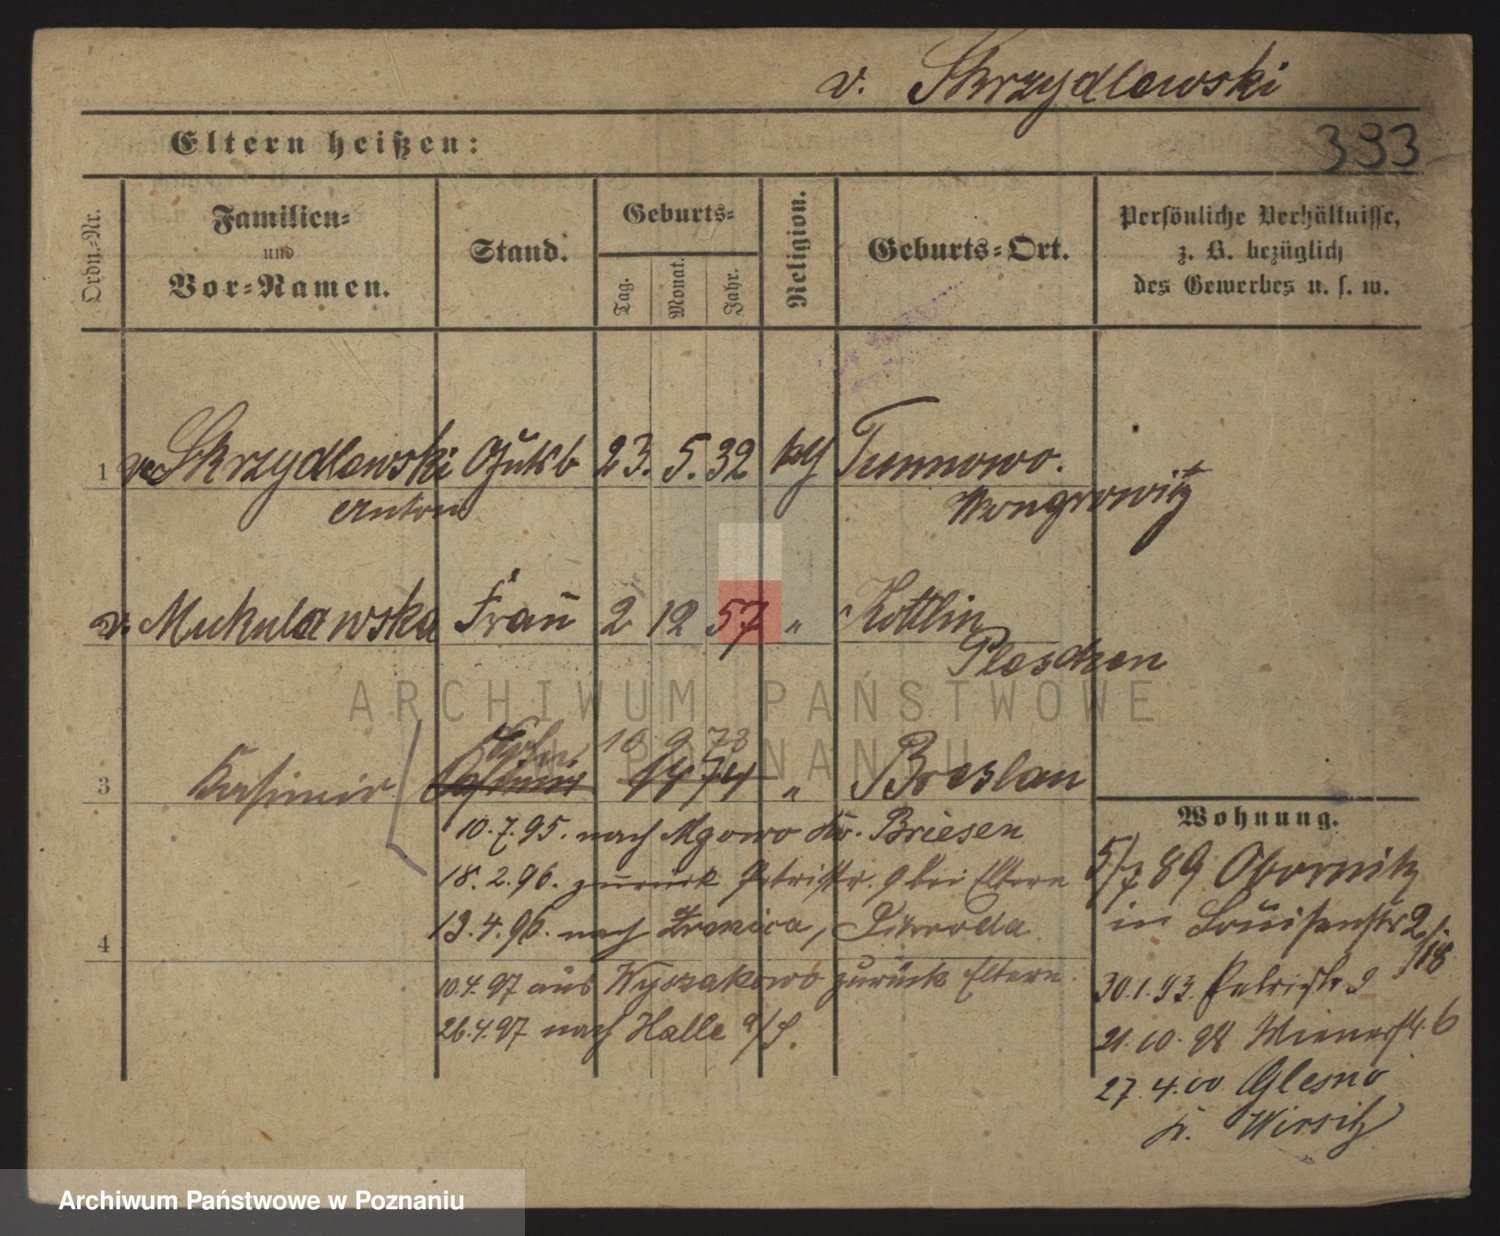 v. Skrzydlewski
Eltern heißen:
393
Ordn.-Nr.
Familien-
und
Vor-Namen.
Stand.
Geburts-
Tag.
Monat.
Jahr.
Religion.
Geburts-Ort.
Persönliche Verhältnisse,
z. B. bezüglich
des Gewerbes u. s. w.
1 v. Skrzydlewski Gutsb 23. 5. 32 kth
Anton
Wongrowitz
v. Mukulawska Frau 2 12 57 " Kottlin
Pleschen
ARCHIWUM PAŃSTWOWE
W POZNANIU
3 Kasimir 18 9 73
74 " Breslau
10.7.95. nach Mgowo Kr. Briesen
18.2.96. zurück Petristr. 9 bei Eltern
13.4.96. nach
4
10.4.97 aus Wyszakowo zurück Eltern
26.4.97 nach Halle a/S.
Wohnung.
5/7 89 Obornik
in Louisenstr
2/
18
30.1.93. Petristr 9
21.10.98 Wienerstr. 6
27.4.00 Glesno
Kr. Wirsitz
Archiwum Państwowe w Poznaniu